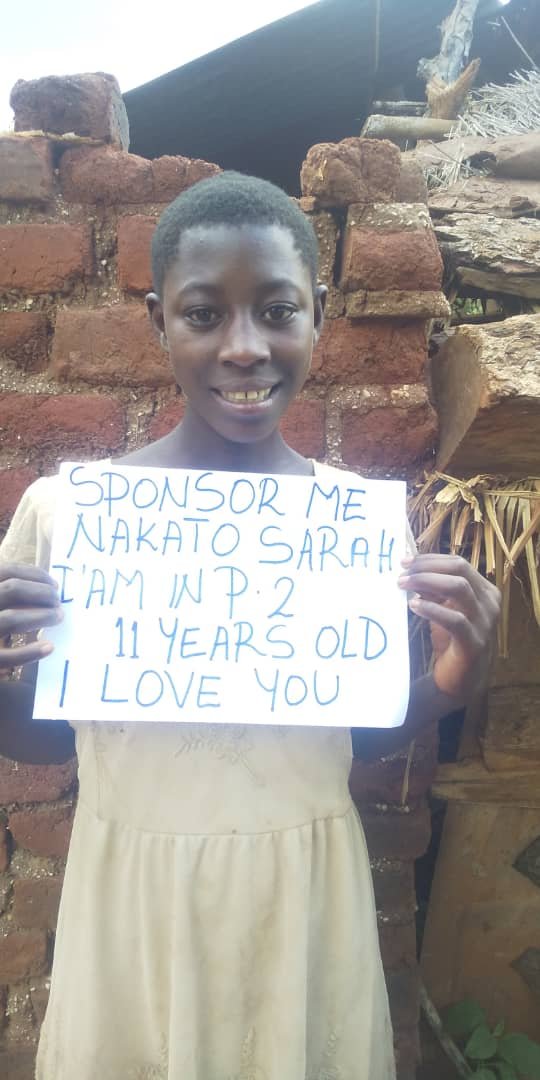 SPONSOR ME
NAKATO SARAH
I'AM IN P.2
11 YEARS OLD
I LOVE YOU